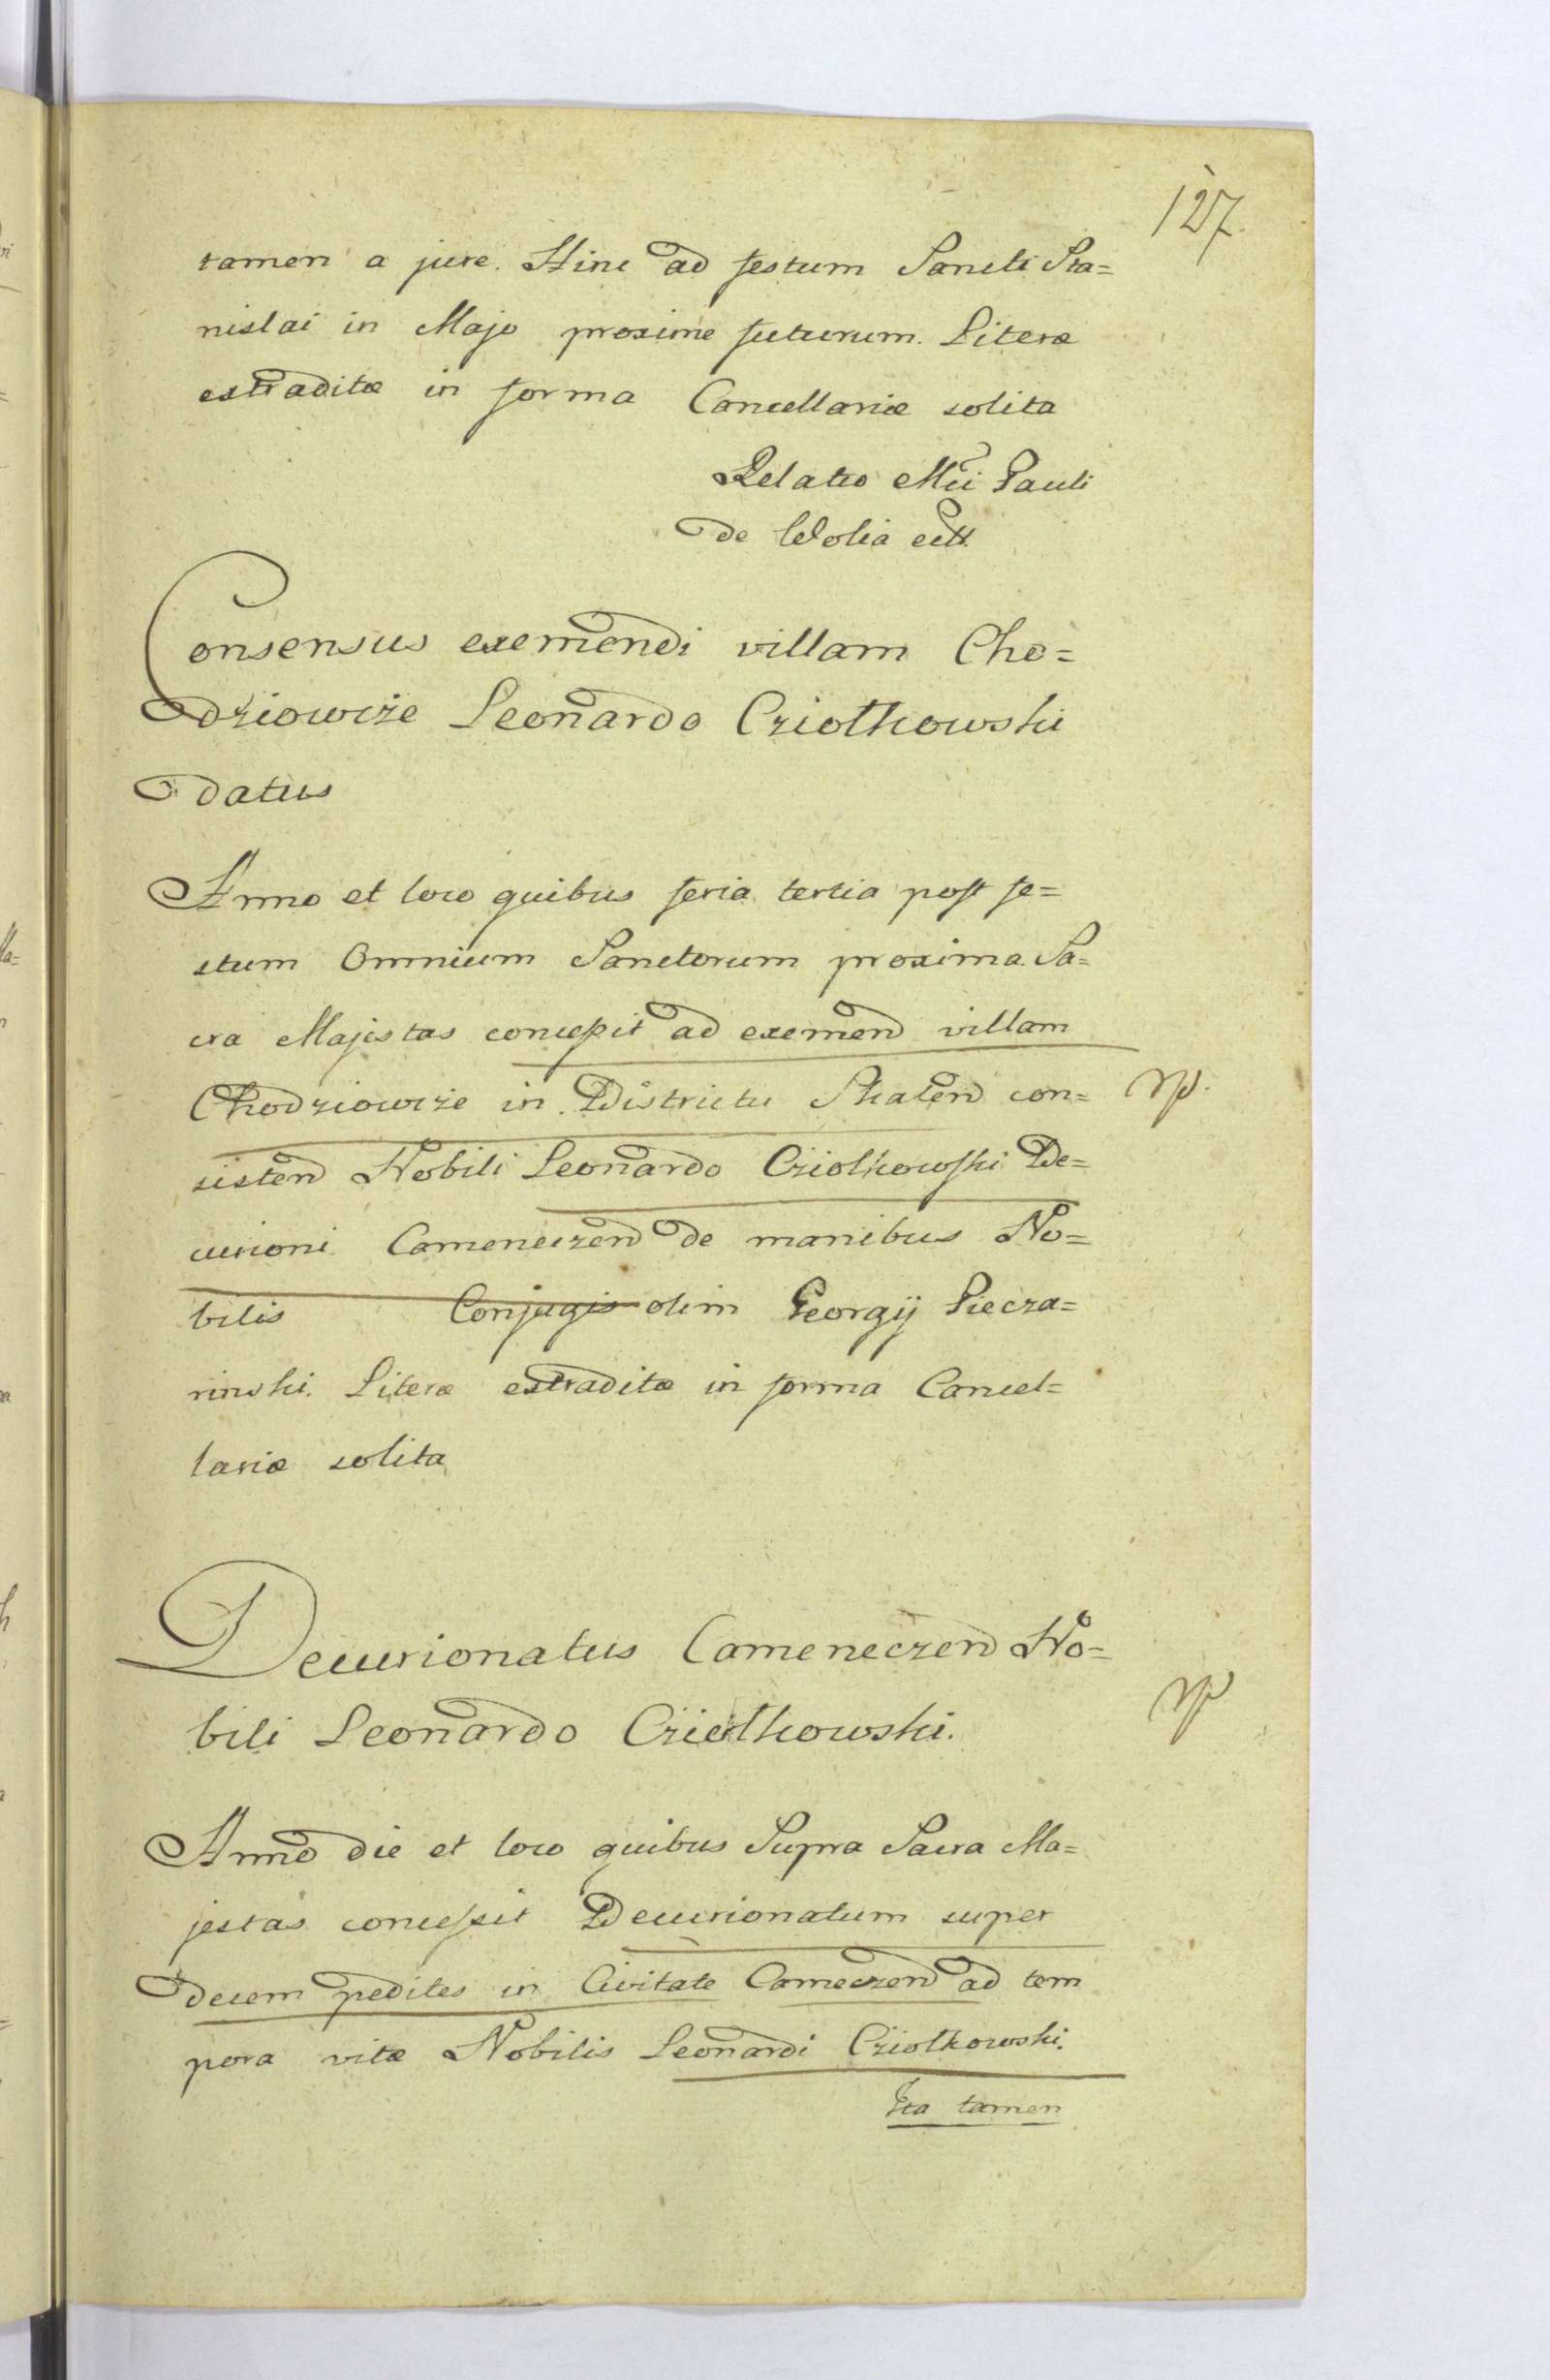 127.
tamen a jure. Hinc ad festum Sancti Sta=
nislai in Majo proxime futurum. Literæ
extraditæ in forma Cancellariæ solita
Relatio Mci Pauli
de Wolia ectt.
Consensus exemendi villam Cho=
dziowcże Leonardo Cziołkowski
datus
Anno et loco quibus feria tertia post fe=
stum Omnium Sanctorum proxima Sa=
cra Majestas concessit ad exemend villam
Chodziowcże in Districtu Halend con=
sistend Nobili Leonardo Cziolkowski De=
curioni Camenecżend de manibus No=
bilis Conjugis olim Georgij Piecza=
rinski. Literæ extraditæ in forma Cancel=
lariæ solita
Decurionatus Cameneczend No=
bili Leonardo Cziołkowski.
Anno die et loco quibus Supra Sacra Ma=
jestas concessit Decurionatum super
decem pedites in Civitate Cameczend ad tem
pora vitæ Nobilis Leonardi Cziołkowski.
Ita tamen